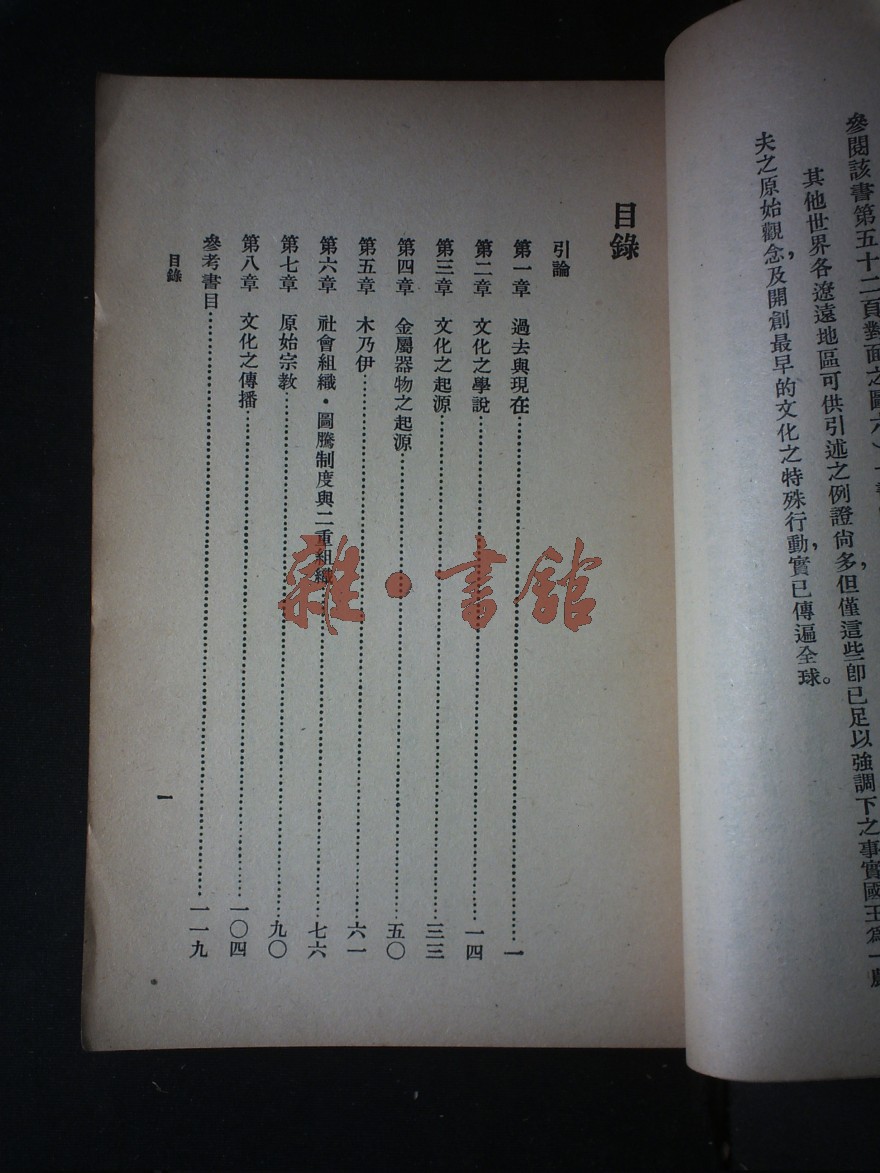 參閱該書第五十二頁對面之圖六
其他世界各遼遠地區可供引述之例證尚多,但僅這些卽已足以強調下之事實國王爲一農
夫之原始觀念,及開創最早的文化之特殊行動,實已傳遍全球。
目錄
引論
第一章 過去與現在……一
第二章 文化之學說……一四
第三章 文化之起源……三三
第四章 金屬器物之起源……五〇
第五章 木乃伊……六一
第六章 社會組織・圖騰制度與二重組織……七六
第七章 原始宗教……九〇
第八章 文化之傳播……一〇四
參考書目……一一九
目錄
一
雜・書館